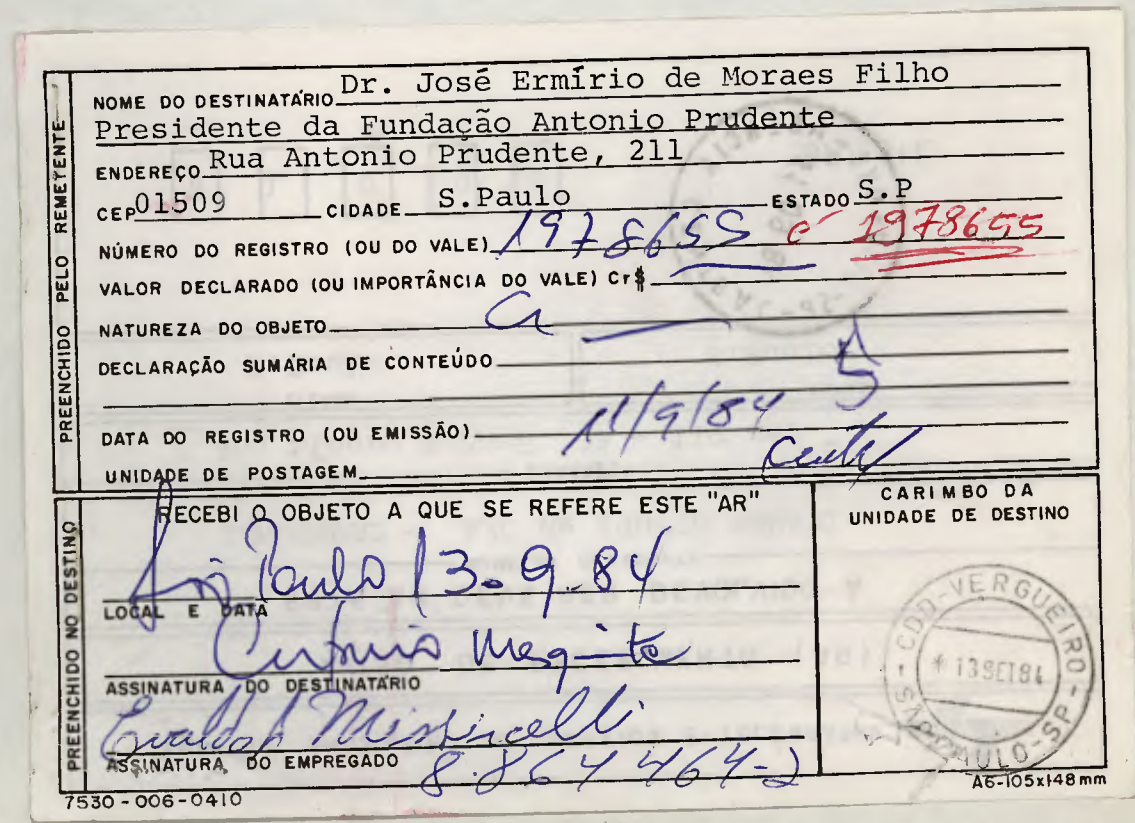 PREENCHIDO PELO REMETENTE
NOME DO DESTINATÁRIO Dr. José Ermírio de Moraes Filho
Presidente da Fundação Antonio Prudente
ENDEREÇO Rua Antonio Prudente, 211
CEP 01509 CIDADE S.Paulo ESTADO S.P
NÚMERO DO REGISTRO (OU DO VALE) 1978655 é 1978655
VALOR DECLARADO (OU IMPORTÂNCIA DO VALE) Cr$
NATUREZA DO OBJETO
DECLARAÇÃO SUMÁRIA DE CONTEÚDO
DATA DO REGISTRO (OU EMISSÃO) 11/9/84
UNIDADE DE POSTAGEM
PREENCHIDO NO DESTINO
RECEBI O OBJETO A QUE SE REFERE ESTE "AR"
São Paulo 13.9.84
LOCAL E DATA
Mesquita
ASSINATURA DO DESTINATÁRIO
ASSINATURA DO EMPREGADO 8.864464-2
CARIMBO DA
UNIDADE DE DESTINO
CDD-VERGUEIRO
* 13 SET 84
SÃO PAULO-SP
7530-006-0410
A6-105x148mm